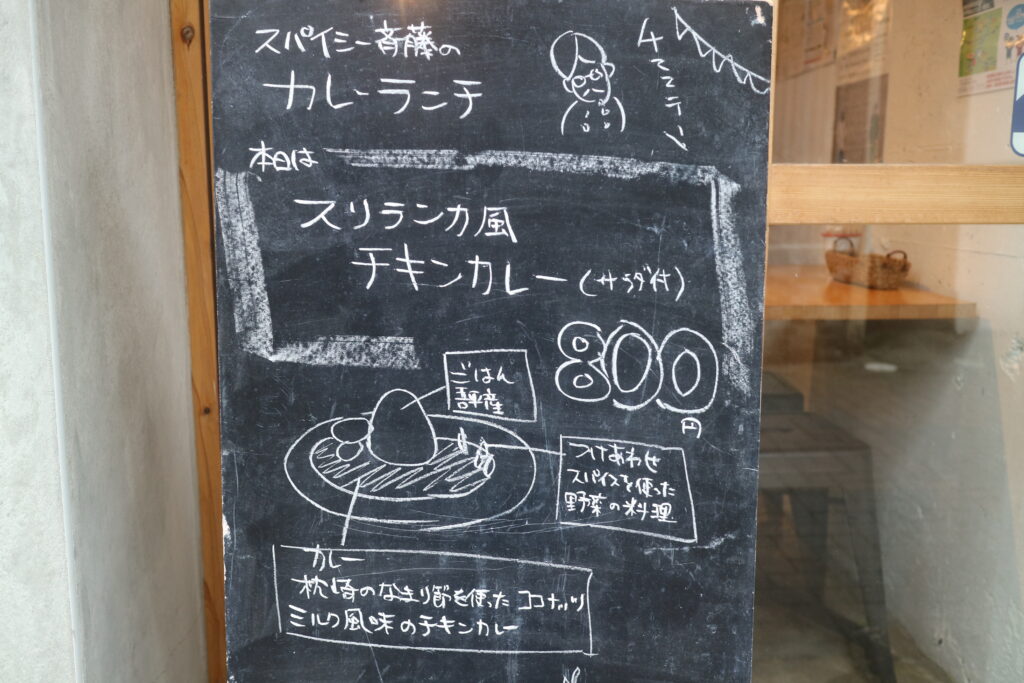 スパイシー斉藤の
カレーランチ
本日は
スリランカ風
チキンカレー(サラダ付)
800
円
ごはん
吾平産
つけあわせ
スパイスを使った
野菜の料理
カレー
枕崎のなまり節を使った ココナッツ
ミルク風味のチキンカレー